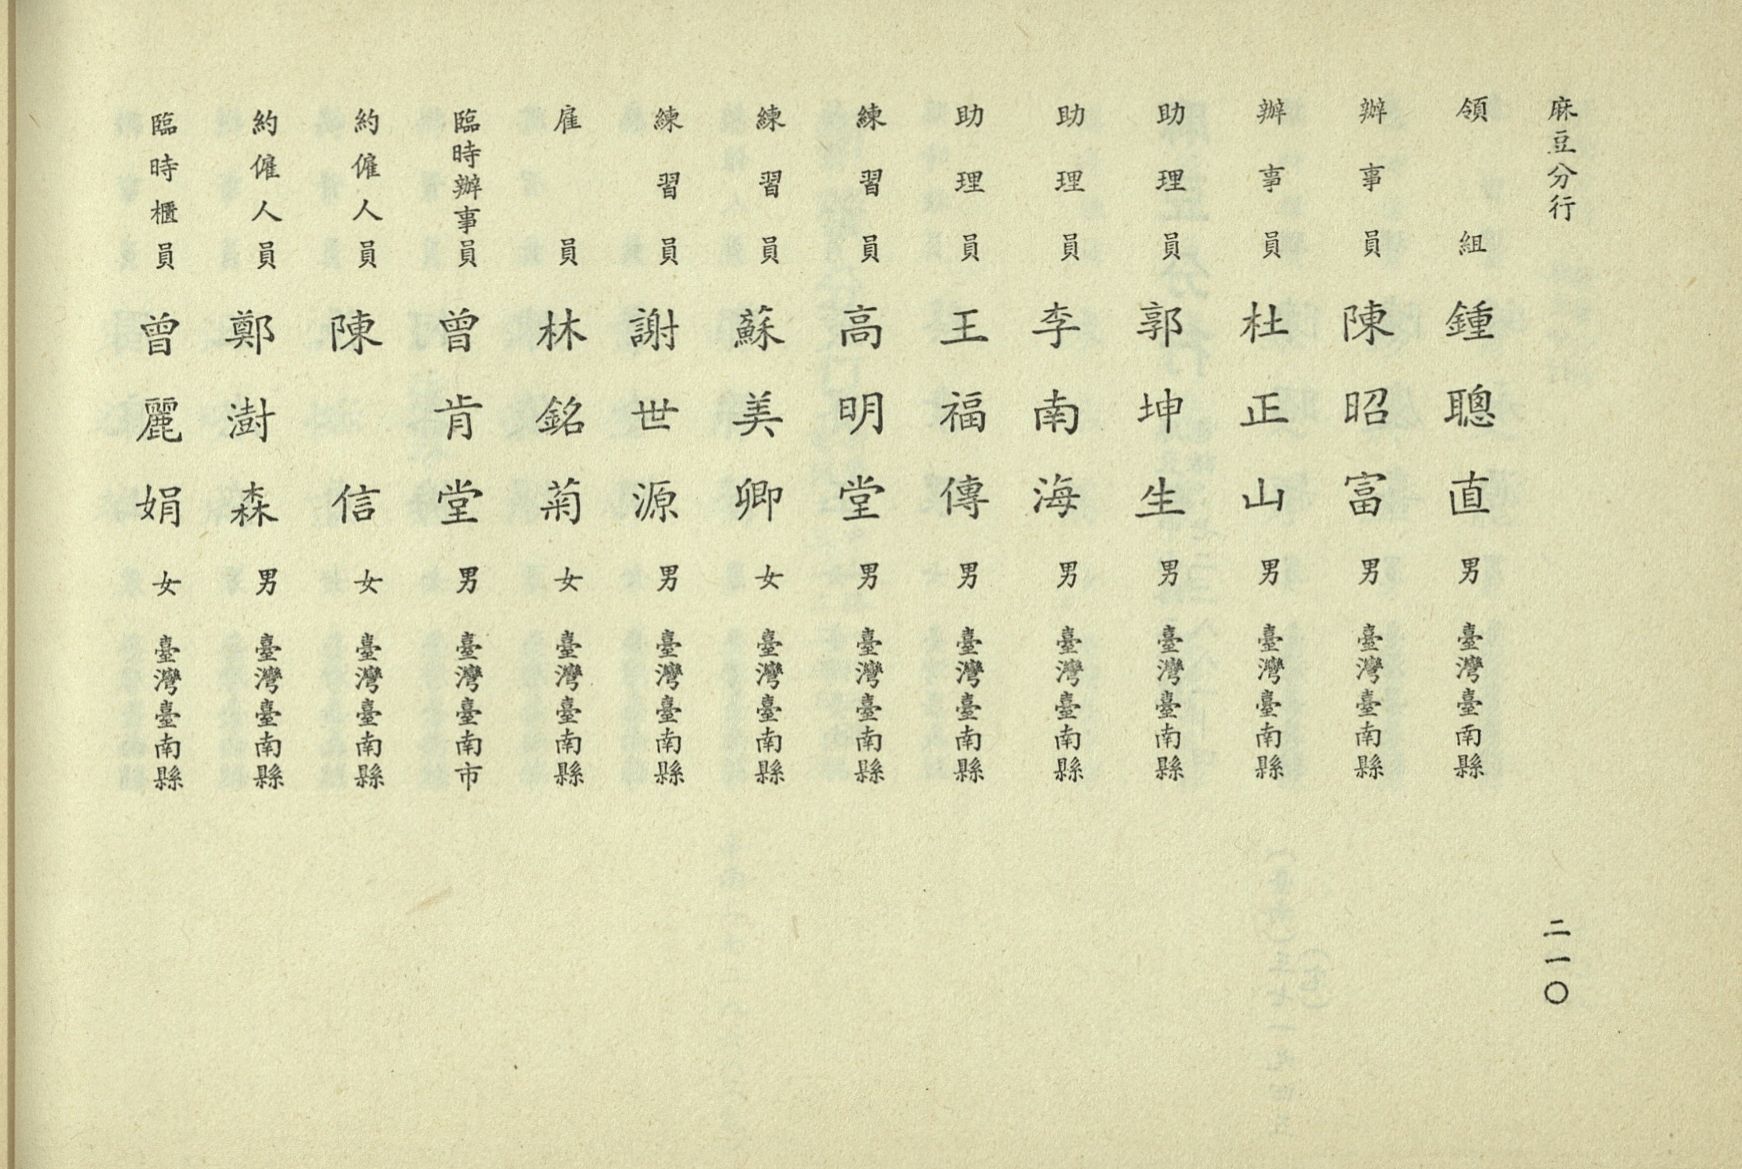 麻豆分行
二一〇
領組 鍾聰直 男 臺灣臺南縣
辦事員 陳昭富 男 臺灣臺南縣
辦事員 杜正山 男 臺灣臺南縣
助理員 郭坤生 男 臺灣臺南縣
助理員 李南海 男 臺灣臺南縣
助理員 王福傳 男 臺灣臺南縣
練習員 高明堂 男 臺灣臺南縣
練習員 蘇美卿 女 臺灣臺南縣
練習員 謝世源 男 臺灣臺南縣
雇員 林銘菊 女 臺灣臺南縣
臨時辦事員 曾肯堂 男 臺灣臺南市
約僱人員 陳信 女 臺灣臺南縣
約僱人員 鄭澍森 男 臺灣臺南縣
臨時櫃員 曾麗娟 女 臺灣臺南縣